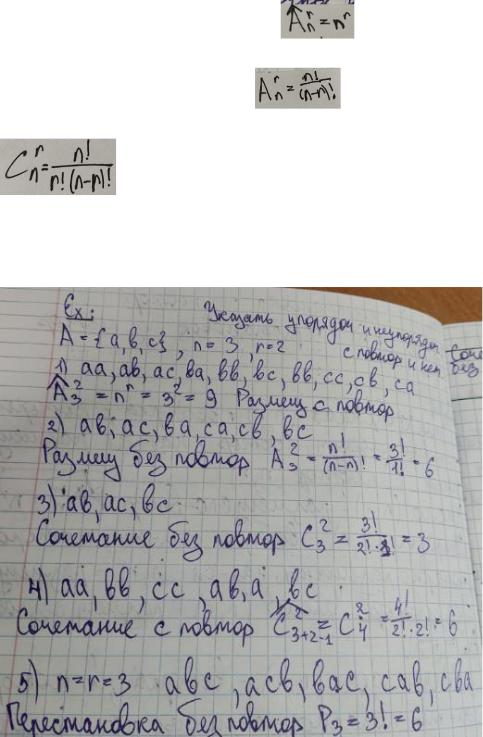 Â_n^r = n^r
A_n^r = n!/(n-r)!
C_n^r = n!/(r!(n-r)!)
Ex:
Указать упорядоч и неупорядоч
A = {a, b, c}, n = 3, r = 2
с повтор и нет
1) aa, ab, ac, ba, bb, bc, bb, cc, cb, ca
Â_3^2 = n^r = 3^2 = 9 Размещ с повтор
2) ab, ac, ba, ca, cb, bc
Размещ без повтор A_3^2 = n!/(n-r)! = 3!/1! = 6
3) ab, ac, bc
Сочетание без повтор C_3^2 = 3!/(2!·1!) = 3
4) aa, bb, cc, ab, a, bc
Сочетание с повтор Ĉ_{3+2-1}^2 = C_4^2 = 4!/(2!·2!) = 6
5) n=r=3 abc, acb, bac, cab, cba
Перестановка без повтор P_3 = 3! = 6